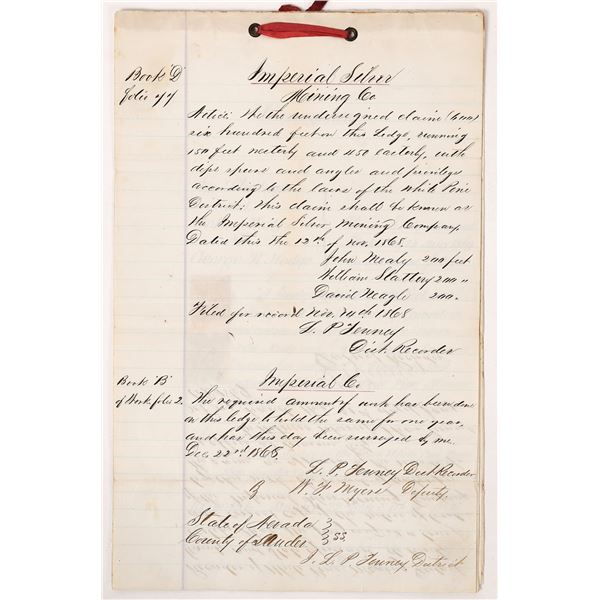 Book "D"
folio 77
Imperial Silver
Mining Co
Notice: We the undersigned claim (600)
six hundred feet on this Ledge, running
150 feet westerly and 450 easterly, with
dips spurs and angles and privileges
according to the laws of the White Pine
District; this claim shall be known as
the Imperial Silver Mining Company
Dated this the 12th of Nov. 1868.
John Mealy 200 feet
William Slattery 200 "
David Neagle 200 "
Filed for record Nov. 14th 1868
L. P. Tenney
Dist. Recorder
Book "B"
of Work folio 2.
Imperial Co.
The required amount of work has been done
on this ledge to hold the same for one year,
and has this day been surveyed by me.
Dec. 22nd 1868.
L. P. Tenney Dist Recorder
By W. F. Myers Deputy.
State of Nevada
County of Lander } SS.
I L. P. Tenney, District